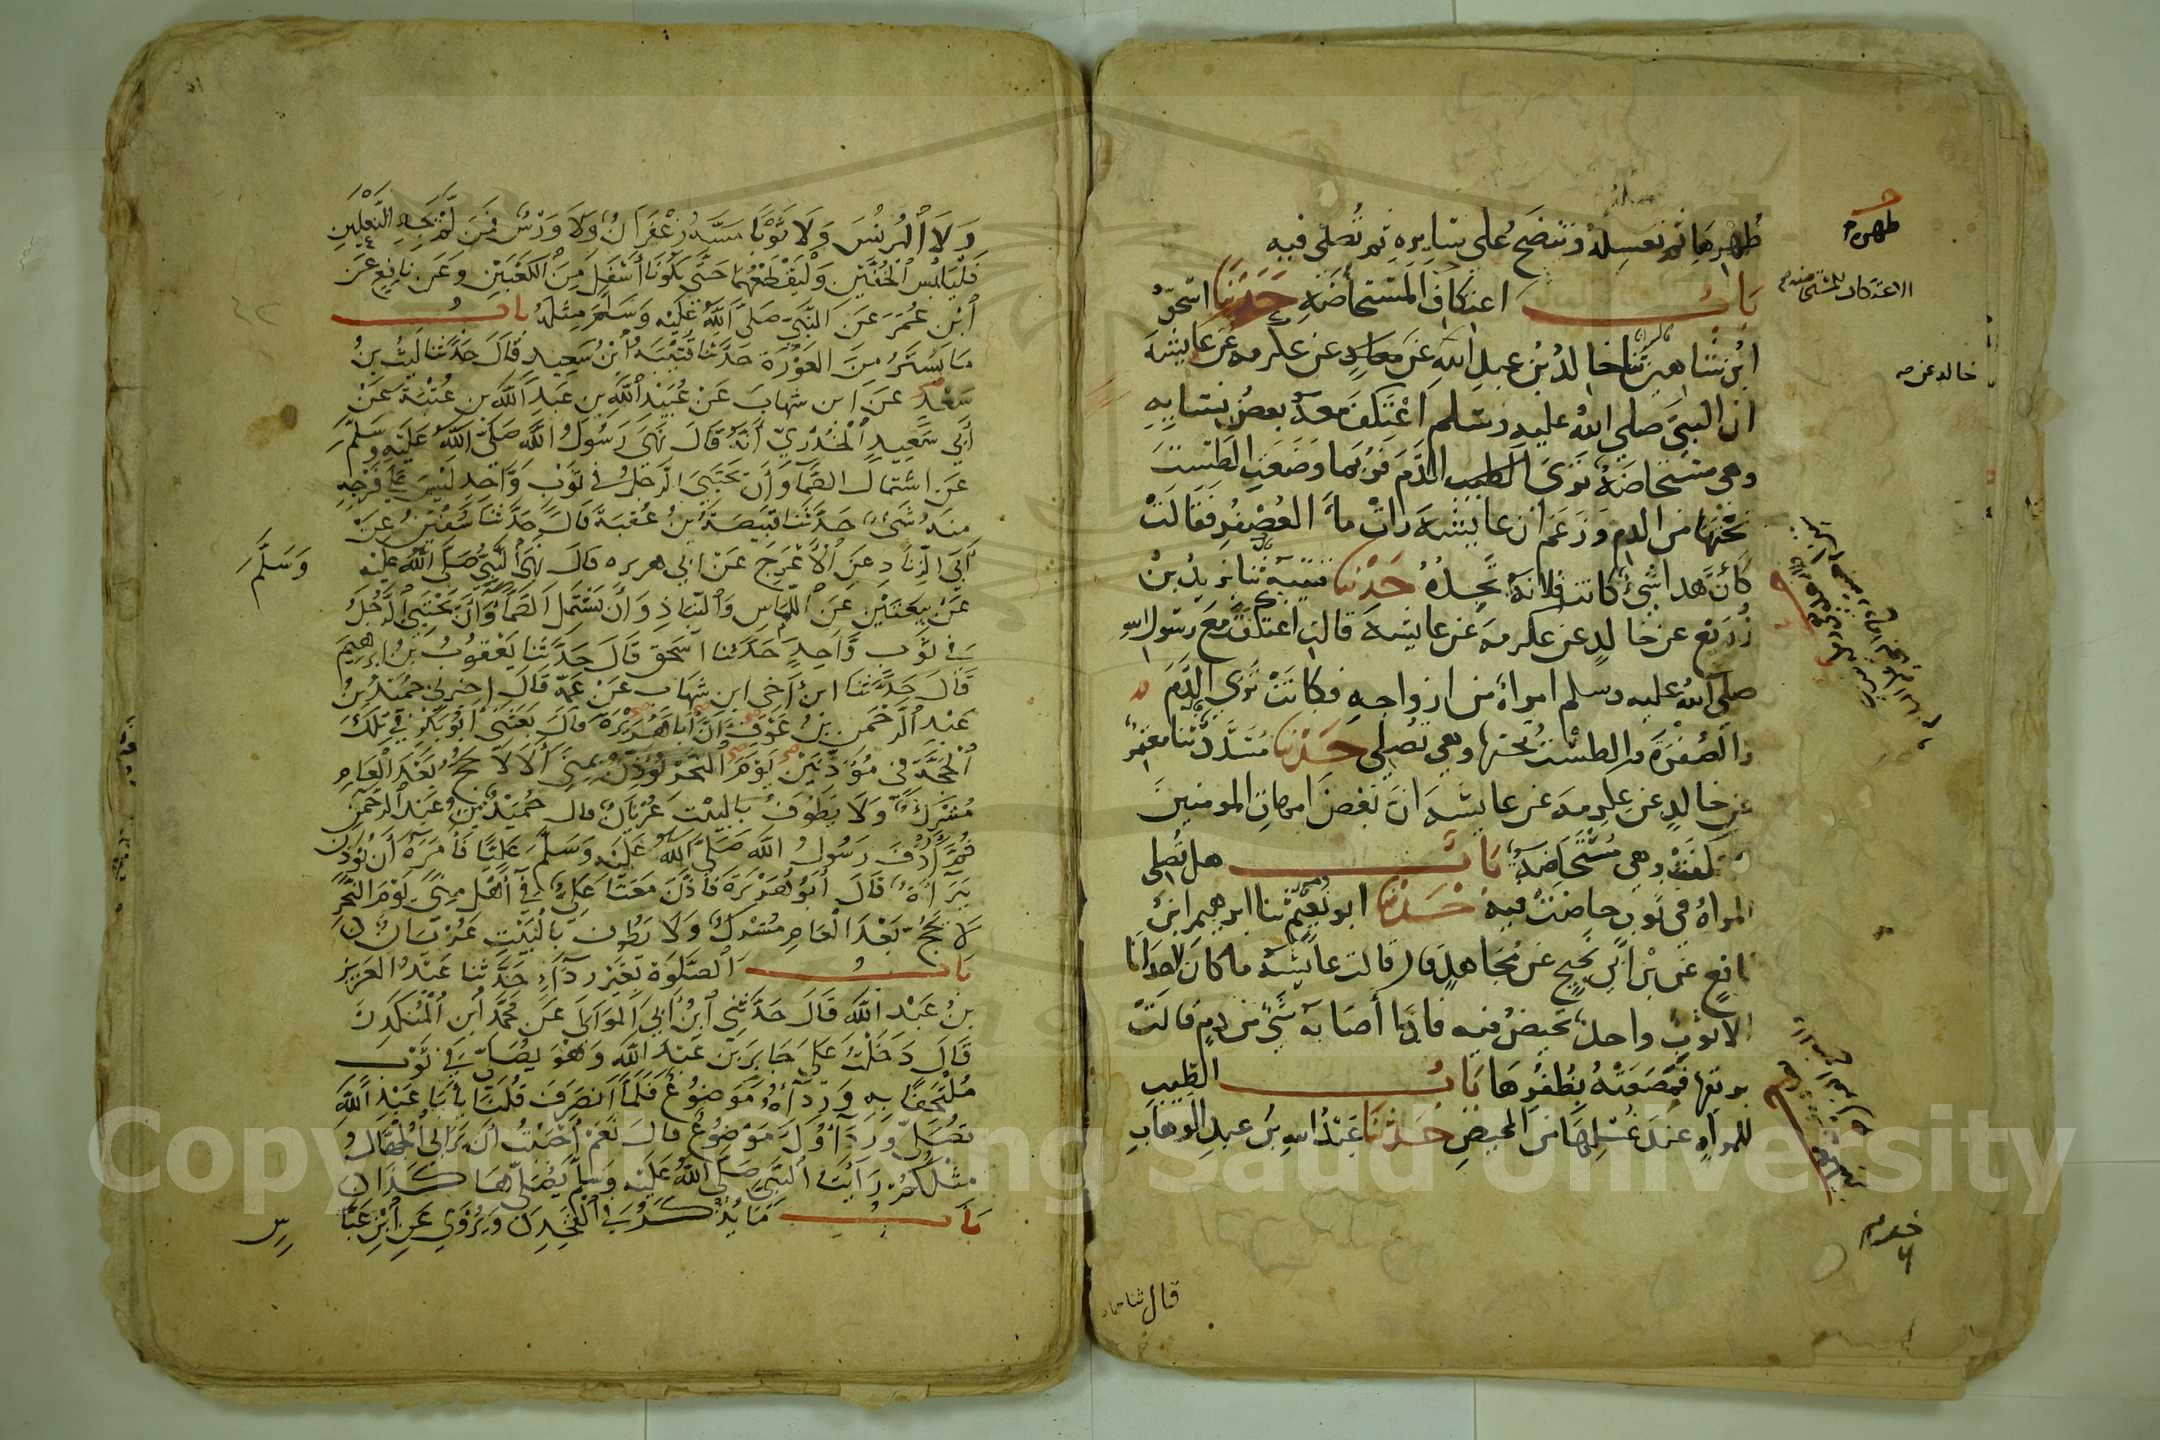 طُهْرِهَا ثم تغسِلُهُ وتنضَحُ على سَايِرِهِ ثم تُصلي فيه
بَابُ اعتكافِ المستحاضَةِ حَدَّثَنَا اسْحَقُ
ابْنُ شاهين ثنا خالدُ بْنُ عبدِ اللهِ عَن خالد عن عكرمه عَن عايشه
ان النبيَّ صلي اللهُ عليهِ وسلم اعْتَكَفَ معهُ بعضُ نسايهِ
وهى مستحاضَةٌ تَرَى الدَّمَ فرُبّما وَضَعَتِ الطَّسْتَ
تحْتَهَا من الدم وَزَعَمَ ان عايشه رَاتْ مآءَ العُصْفُرِ فَقَالَتْ
كَأنَّ هذا شىٌ كانت فلانةُ تَجِدُهُ حَدَّثَنَا قتيبه ثنا يزيدُ بنُ
زُرَيْعٍ عن خالدٍ عن عكرمه عَن عايشه قالت اعتكفَتْ مَعَ رسول الله
صلى اللهُ عليه وسلم امراةٌ من ازواجِهِ فكانتْ تَرَى الدَّمَ
والصُّفْرَةَ والطستُ تحتها وهى تصلى حَدَّثَنَا مُسَدَّدٌ ثنا معتمرٌ
عن خالدٍ عن عِكرِمه عن عايشه انّ بَعْضَ امهاتِ المومنين
اعتكفَتْ وهى مُسْتَحَاضَةٌ بَابٌ هل تُصلى
المراةُ فى ثوبٍ حاضَتْ فيهِ حَدَّثَنَا ابو نُعَيْمٍ ثنا ابرهيم ابنُ
نافعٍ عَن بْن ابى نجيحٍ عن مُجَاهدٍ قال قالت عايشه ما كان لاحدانا
الا ثوبٌ واحدٌ تحيضُ فيه فاذا أصَابَه شىٌ من دمٍ قالَتْ
بريقها فَمَصَعَتْهُ بِظُفُرِهَا بَابُ الطِّيبِ
للمراةِ عندَ غُسْلِهَا من المحيضِ حَدَّثَنَا عَبْدُ اللهِ بنُ عبدِ الوهابِ
قال ثنا حماد
طهره
خالد عن
وَلَا ٱلْبُرْنُسَ وَلَا ثَوْبًا مَسَّهُ زَعْفَرَانٌ وَلَا وَرْسٌ فَمَن لَّمْ يَجِدِ النَّعْلَيْنِ
فَلْيَلْبَسِ ٱلْخُفَّيْنِ وَلْيَقْطَعْهُمَا حَتَّى يَكُونَا أَسْفَلَ مِنَ ٱلْكَعْبَيْنِ وَعَن نَافِعٍ عَن
ٱبْنِ عُمَرَ عَنِ النَّبِيِّ صَلَّى ٱللَّهُ عَلَيْهِ وَسَلَّمَ مِثْلَهُ بَابُ
مَا يَسْتُرُ مِنَ العَوْرَةِ حَدَّثَنَا قُتَيْبَةُ ٱبْنُ سَعِيدٍ قَالَ حَدَّثَنَا لَيْثُ بنُ
سَعْدٍ عَنِ ابن شِهَابَ عَنْ عُبَيْدِ ٱللَّهِ بنِ عَبْدِ ٱللَّهِ بنِ عُتْبَةَ عَنْ
أَبِي سَعِيدٍ ٱلْخُدْرِيِّ أَنَّهُ قَالَ نَهَى رَسُولُ ٱللَّهِ صَلَّى ٱللَّهُ عَلَيْهِ وَسَلَّمَ
عَنِ اشتمال الصَّمَّآءِ وَأَن يَحْتَبِيَ الرَّجُلُ فِي ثَوْبٍ وَّاحِدٍ لَيْسَ عَلَى فَرْجِهِ
مِنْهُ شَىْءٌ حَدَّثَنَا قَبِيصَةُ بْنُ عُقْبَةَ قَالَ حَدَّثَنَا سُفْيٰنُ عَنْ
أَبِي الزِّنَادِ عَنِ ٱلْأَعْرَجِ عَنْ ابى هريره قَالَ نَهَى ٱلنَّبِيُّ صَلَّى ٱللَّهُ عَلَيْهِ
وَسَلَّمَ
عَنْ بَيْعَتَيْنِ عَنِ ٱللِّمَاسِ وَٱلنِّبَاذِ وَأَن يَشْتَمِلَ ٱلصَّمَّآءَ وَأَن يَحْتَبِيَ ٱلرَّجُلُ
فِي ثَوْبٍ وَّاحِدٍ حَدَّثَنَا اسْحَقُ قَالَ حَدَّثَنَا يَعْقُوبُ بْنُ ابرهيمَ
قَالَ حَدَّثَنَا ابنُ أَخِي ابنِ شِهَابٍ عَنْ عَمِّهِ قَالَ اخبرني حُمَيْدُ بْنُ
عَبْدِ ٱلرَّحْمَنِ بْنِ عَوْفٍ أَنَّ أَبَا هُرَيْرَةَ قَالَ بَعَثَنِي أَبُو بَكْرٍ فِي تِلْكَ
ٱلْحَجَّةِ فِي مُؤَذِّنِينَ يَوْمَ ٱلنَّحْرِ نُؤَذِّنُ بِمِنًى أَلَا لَا يَحُجُّ بَعْدَ ٱلْعَامِ
مُشْرِكٌ وَلَا يَطُوفُ بِالبَيْتِ عُرْيَانٌ قال حُمَيْدُ بْنُ عَبْدِ ٱلرَّحْمَنِ
ثُمَّ أَرْدَفَ رَسُولُ اللَّهِ صَلَّى ٱللَّهُ عَلَيْهِ وَسَلَّمَ عَلِيًّا فَأَمَرَهُ أَن يُؤَذِّنَ
بِبَرَآءَةٌ قَالَ أَبُو هُرَيْرَةَ فَأَذَّنَ مَعَنَا عَلِيٌّ فِي أَهْلِ مِنًى يَوْمَ النَّحْرِ
لَا يَحُجُّ بَعْدَ الْعَامِ مُشْرِكٌ وَلَا يَطُوفُ بِالْبَيْتِ عُرْيَانٌ
بَابُ ٱلصَّلٰوةِ بِغَيْرِ رِدَآءٍ حَدَّثَنَا عَبْدُ العَزِيزِ
بنُ عَبْدِ اللَّهِ قَالَ حَدَّثَنِي ٱبْنُ أَبِي الْمَوَالِي عَنْ مُحَمَّدِ ابْنِ ٱلْمُنْكَدِرِ
قَالَ دَخَلْتُ عَلَى جَابِرِ بْنِ عَبْدِ ٱللَّهِ وَهُوَ يُصَلِّي فِي ثَوْبٍ
مُلْتَحِفًا بِهِ وَرِدَآءُهُ مَوْضُوعٌ فَلَمَّا ٱنصَرَفَ قُلْنَا يَا بَا عَبْدِ اللَّهِ
تُصَلِّي وَرِدَآؤُكَ مَوْضُوعٌ قَالَ نَعَمْ أَحْبَبْتُ أَن يَرَانِي ٱلْجُهَّالُ
مِثْلُكُمْ رَأَيْتُ ٱلنَّبِيَّ صَلَّى ٱللَّهُ عَلَيْهِ وَسَلَّمَ يُصَلِّي هَا كَذَا
بَابُ مَا يُذْكَرُ فِي ٱلْفَخِذِ وَيُرْوَى عَنِ ٱبْنِ عَبَّا
سٍ
Copyright © King Saud University